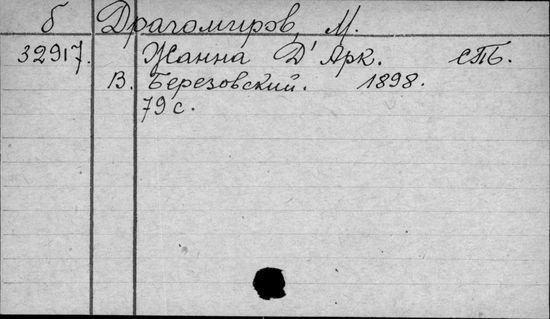 б Драгомиров, М.
32917. Жанна Д'Арк. СПБ.
В. Березовский. 1898.
79 с.